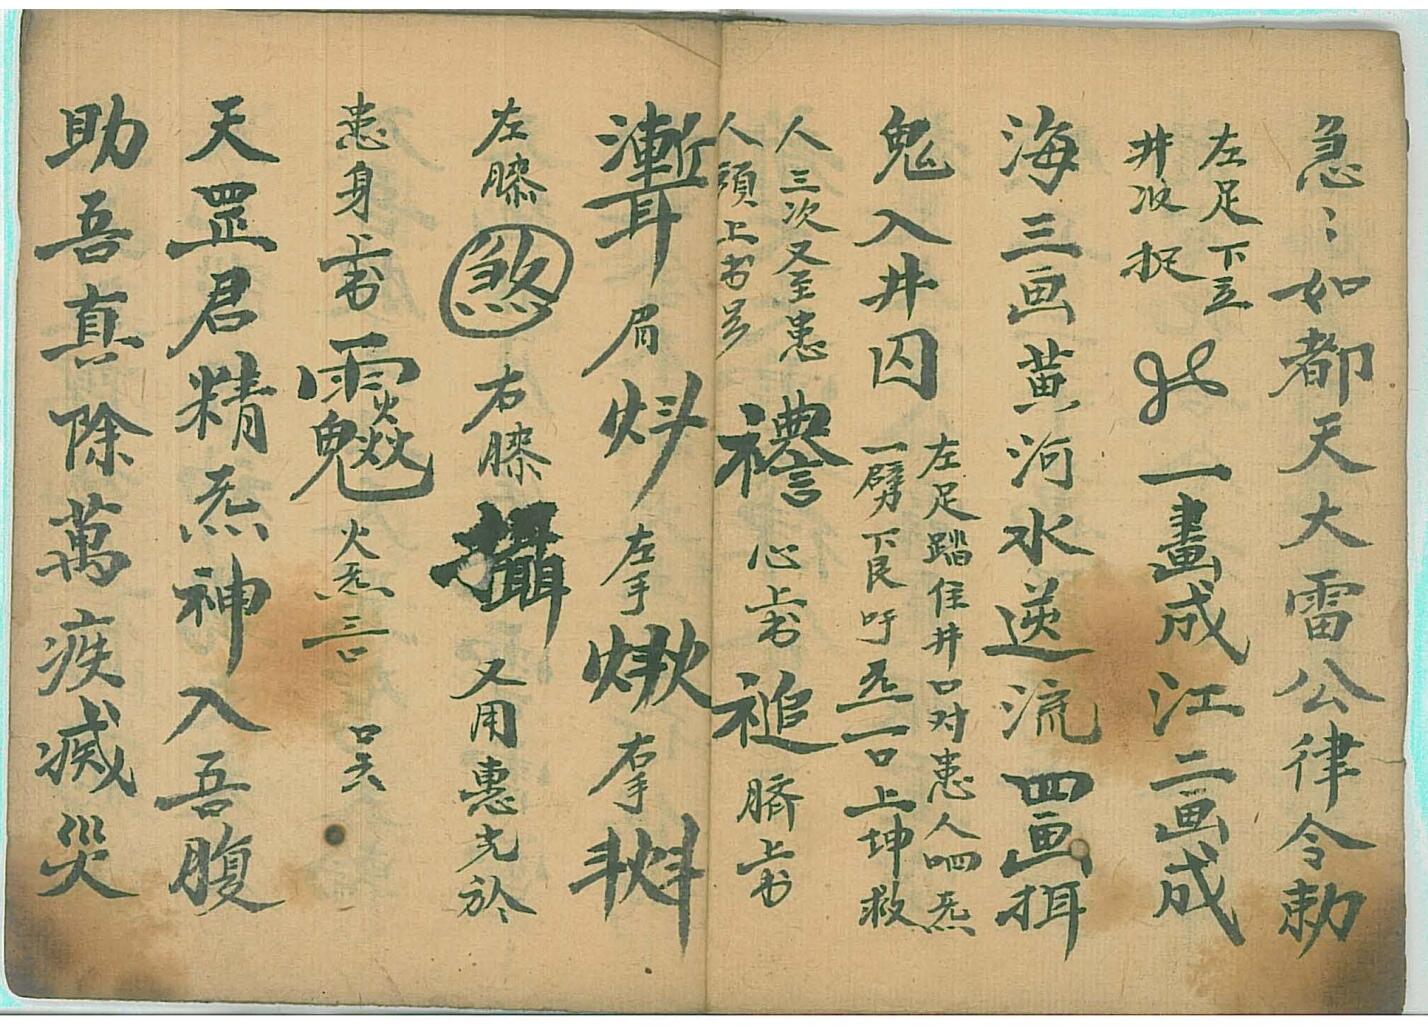 急〻如都天大雷公律令勅
左足下立
井収捉
一畫成江二画成
海三画黄河水逆流四画揖
鬼入井囚
左足踏住井口对患人呬炁
一劈下民吁炁一口上坤救
人三次又至患
人頭上书
心上书
脐上书
眉
左手
右手
左膝 煞 右膝 攝 又用惠光於
患身上书
火炁三口
天罡君精炁神入吾腹
助吾真除萬疾滅災